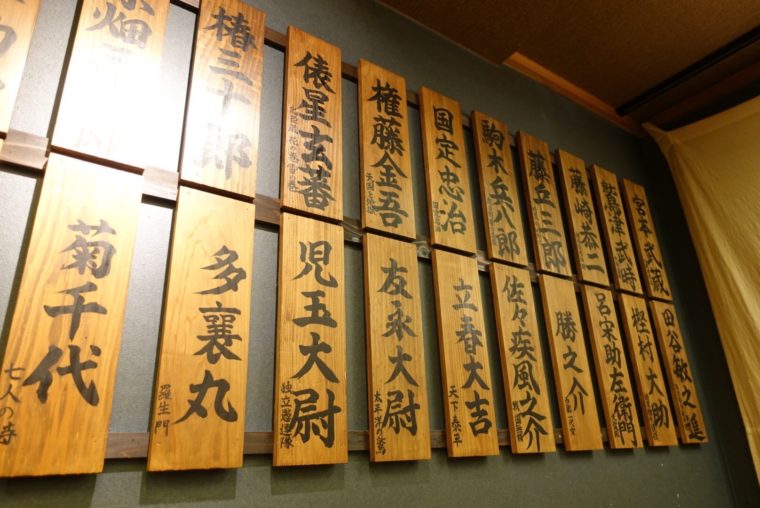 宮本武蔵
鷲津武時
藤崎恭二
藤丘三郎
駒木兵八郎
国定忠治
権藤金吾
天国と地獄
俵星玄蕃
忠臣蔵 花の巻雪の巻
椿三十郎
畑
樫村大助
呂宋助左衛門
勝之介
佐々疾風之介
立春大吉
天下泰平
友永大尉
太平洋の鷲
児玉大尉
独立愚連隊
多襄丸
羅生門
菊千代
七人の侍